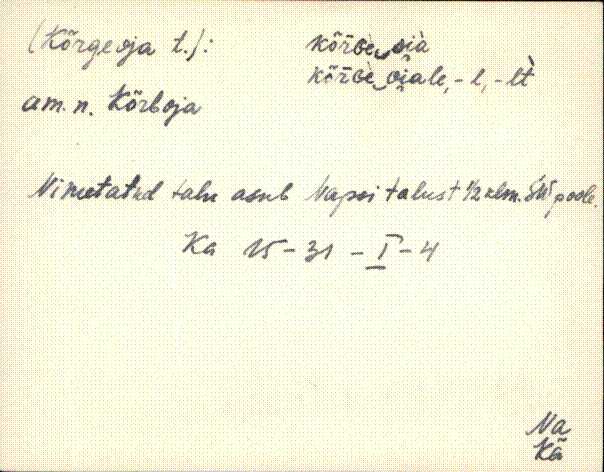 (Kõrgeoja t.):
kõrbè ojà
kõrbè ojale, -l, -lt
am. n. Kõrboja
Nimetatud talu asub Napsi talust 1/2 klm. SW poole.
Ka 15-31-I-4
Na
Kä